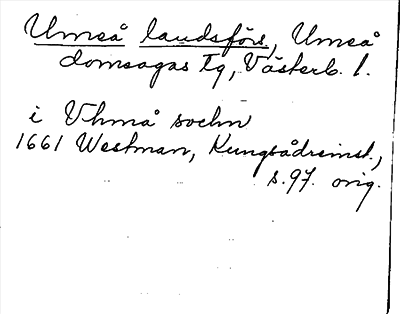 Umeå landsförs, Umeå
domsagas tg, Västerb. l.
i Vhmå sochn
1661 Westman, Kungsådreinst.,
s. 97. orig.